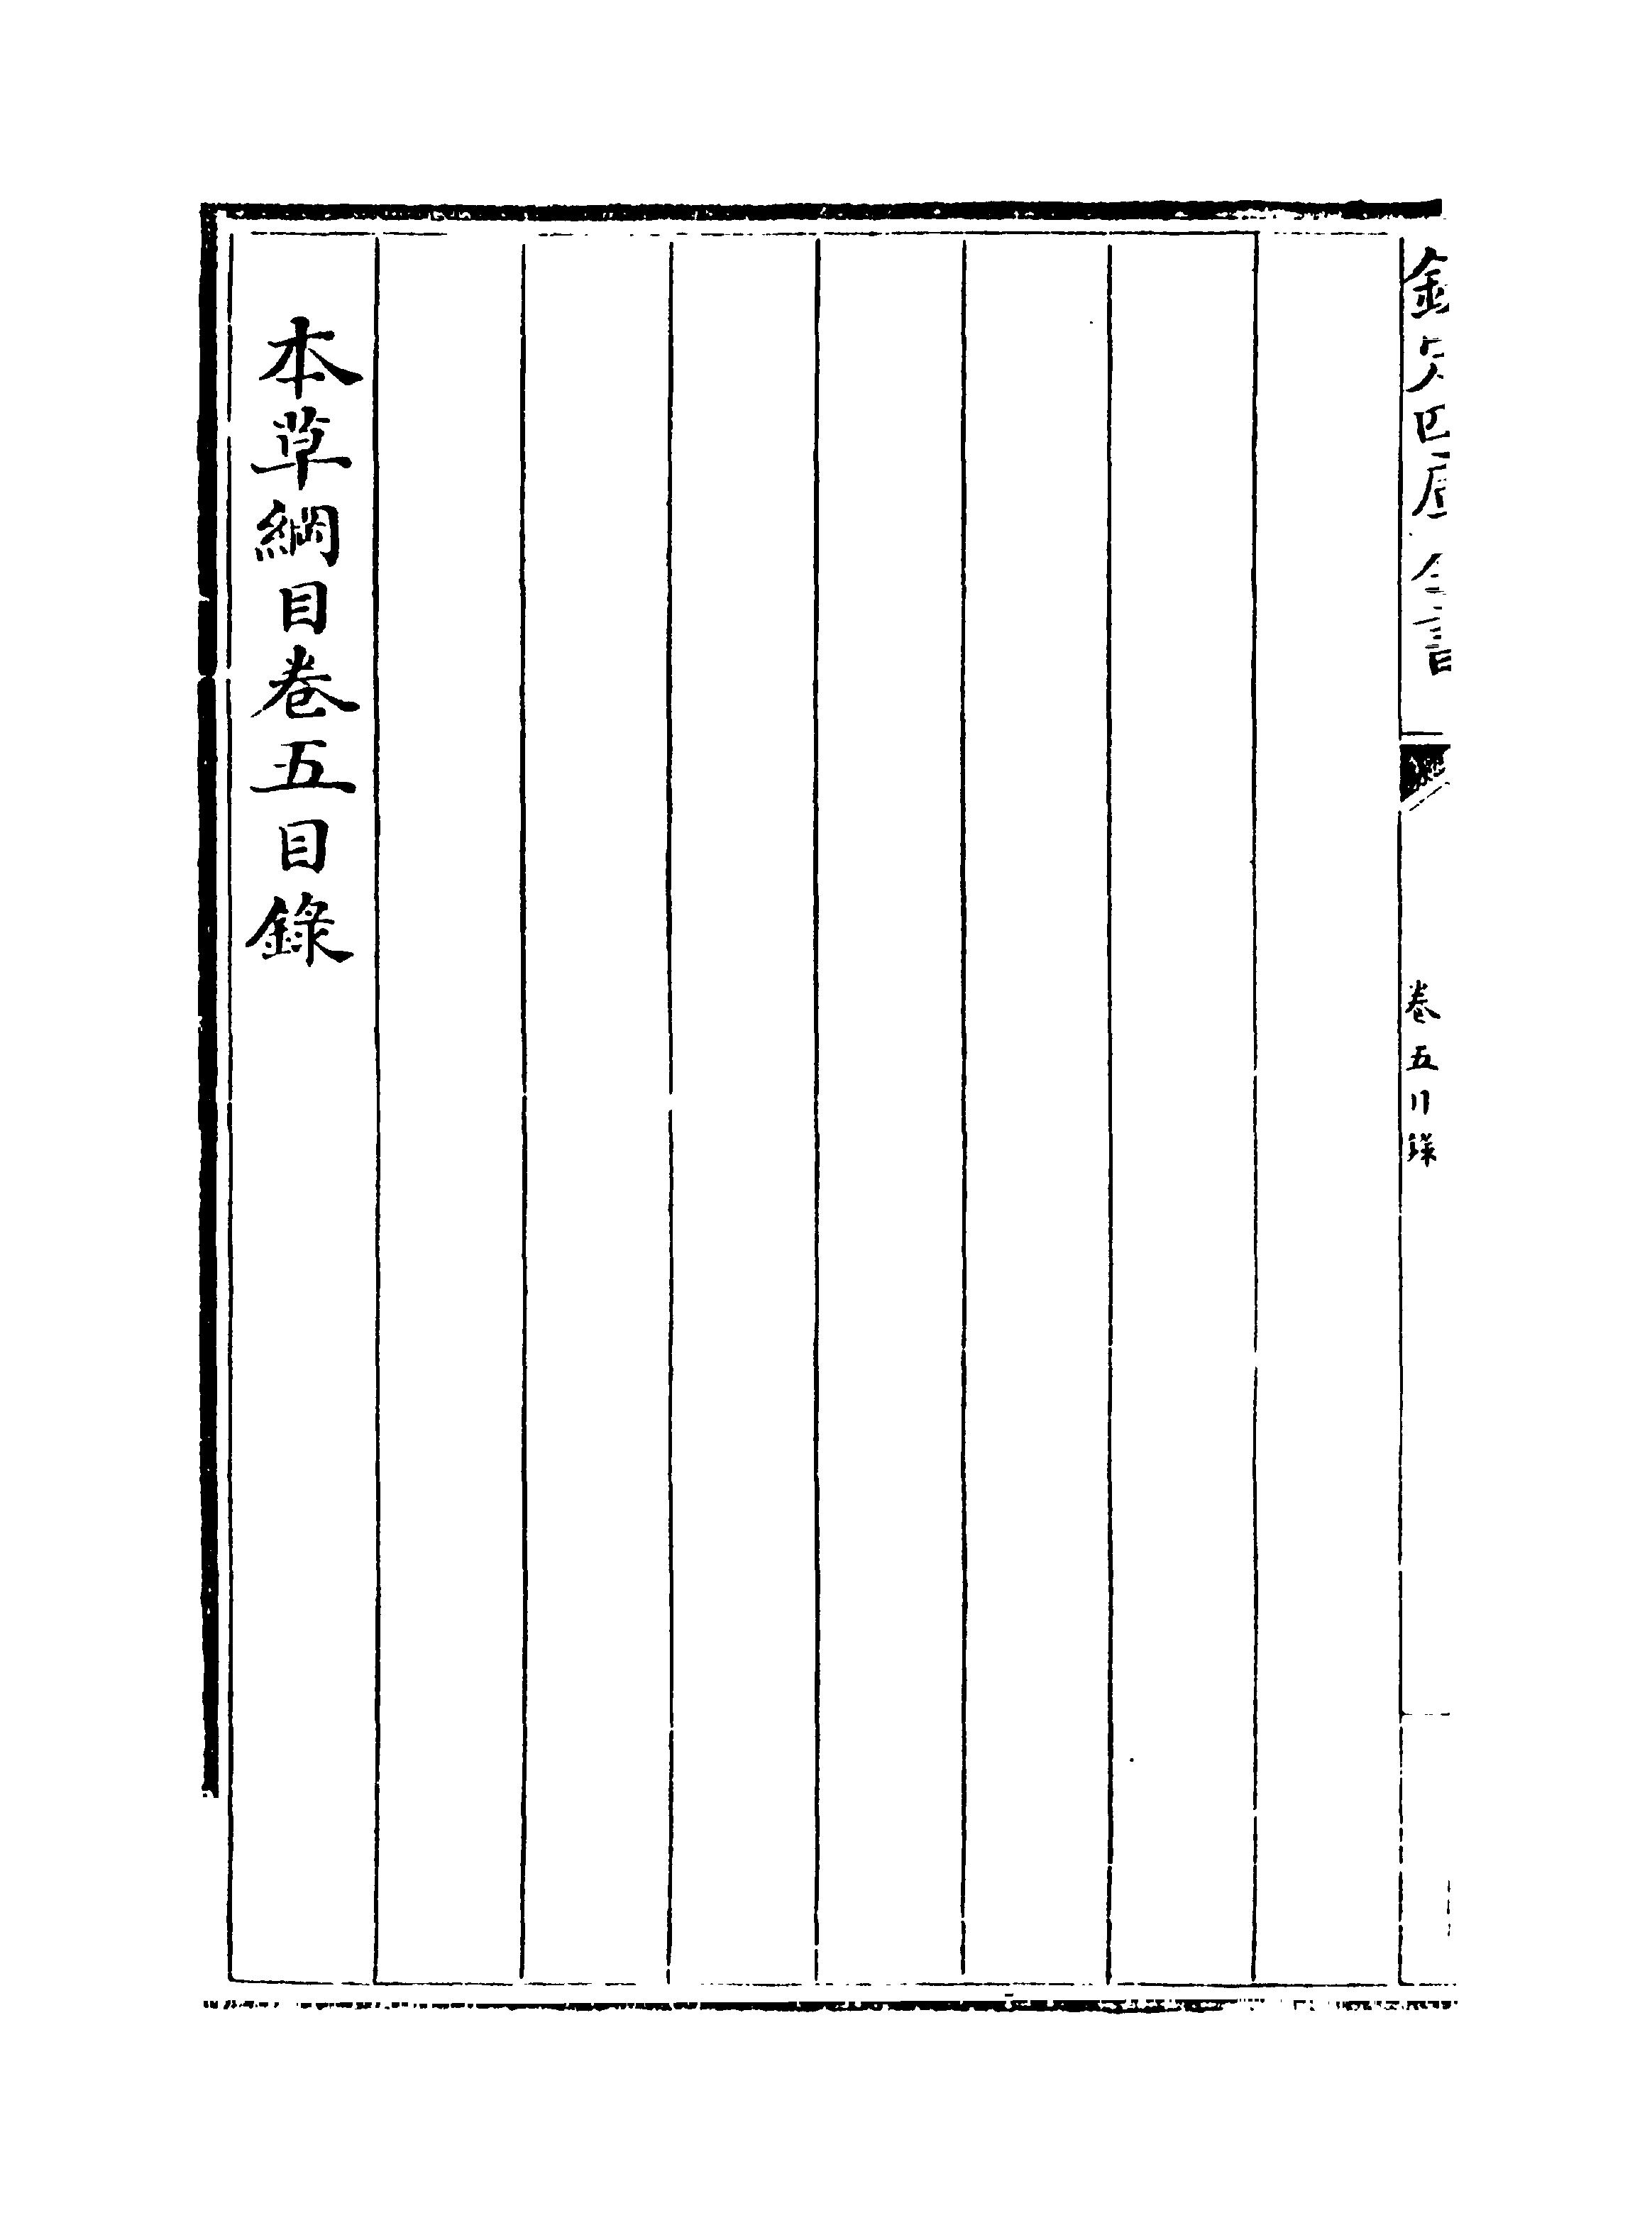 欽定四庫全書
卷五目錄
本草綱目卷五目錄